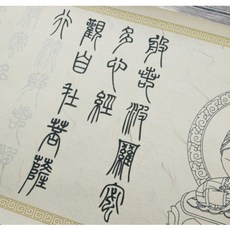 般若波羅蜜
多心經
觀自在菩薩
行